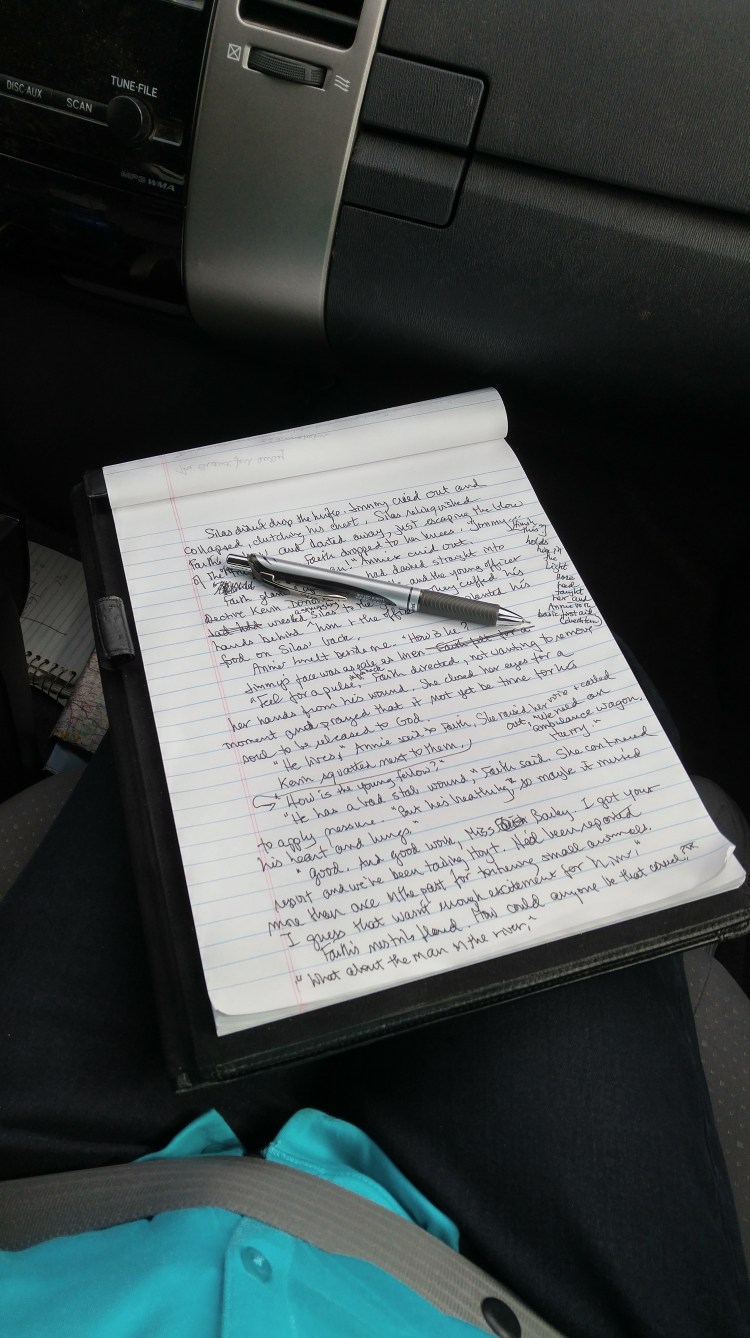 TUNE·FILE
DISC AUX
SCAN
MP3 WMA
Silas didn't drop the knife. Jimmy cried out and
collapsed, clutching his chest. Silas relinquished
Faith's and darted away, just escaping the blow
of the Faith dropped to her knees. "Jimmy
Annie cried out.
Faith had dashed straight into
Kevin and the young officer
wrestled Silas to the they cuffed his
hands behind him & the planted his
food on Silas' back.
Annie knelt beside me. "How is he?"
Jimmy's face was as pale as linen.
"Feel for a pulse," Faith directed, not wanting to remove
her hands from his wound. She closed her eyes for a
moment and prayed that it not yet be time for his
soul to be released to God.
"He lives," Annie said to Faith. She raised her voice & called
out, "We need an
ambulance wagon,
Hurry."
Kevin squatted next to them.
"How is the young fellow?"
"He has a bad stab wound," Faith said. She continued
to apply pressure. "But he's healthy, so maybe it missed
his heart and lungs."
"Good. And good work, Miss Bailey. I got your
report and we've been tailing Hoyt. He'd been reported
more than once in the past for torturing small animals.
I guess that wasn't enough excitement for him."
Faith's nostrils flared. How could anyone be that cruel?
"What about the man in the river,"
this
light
taught
her and
Annie
basic first aid